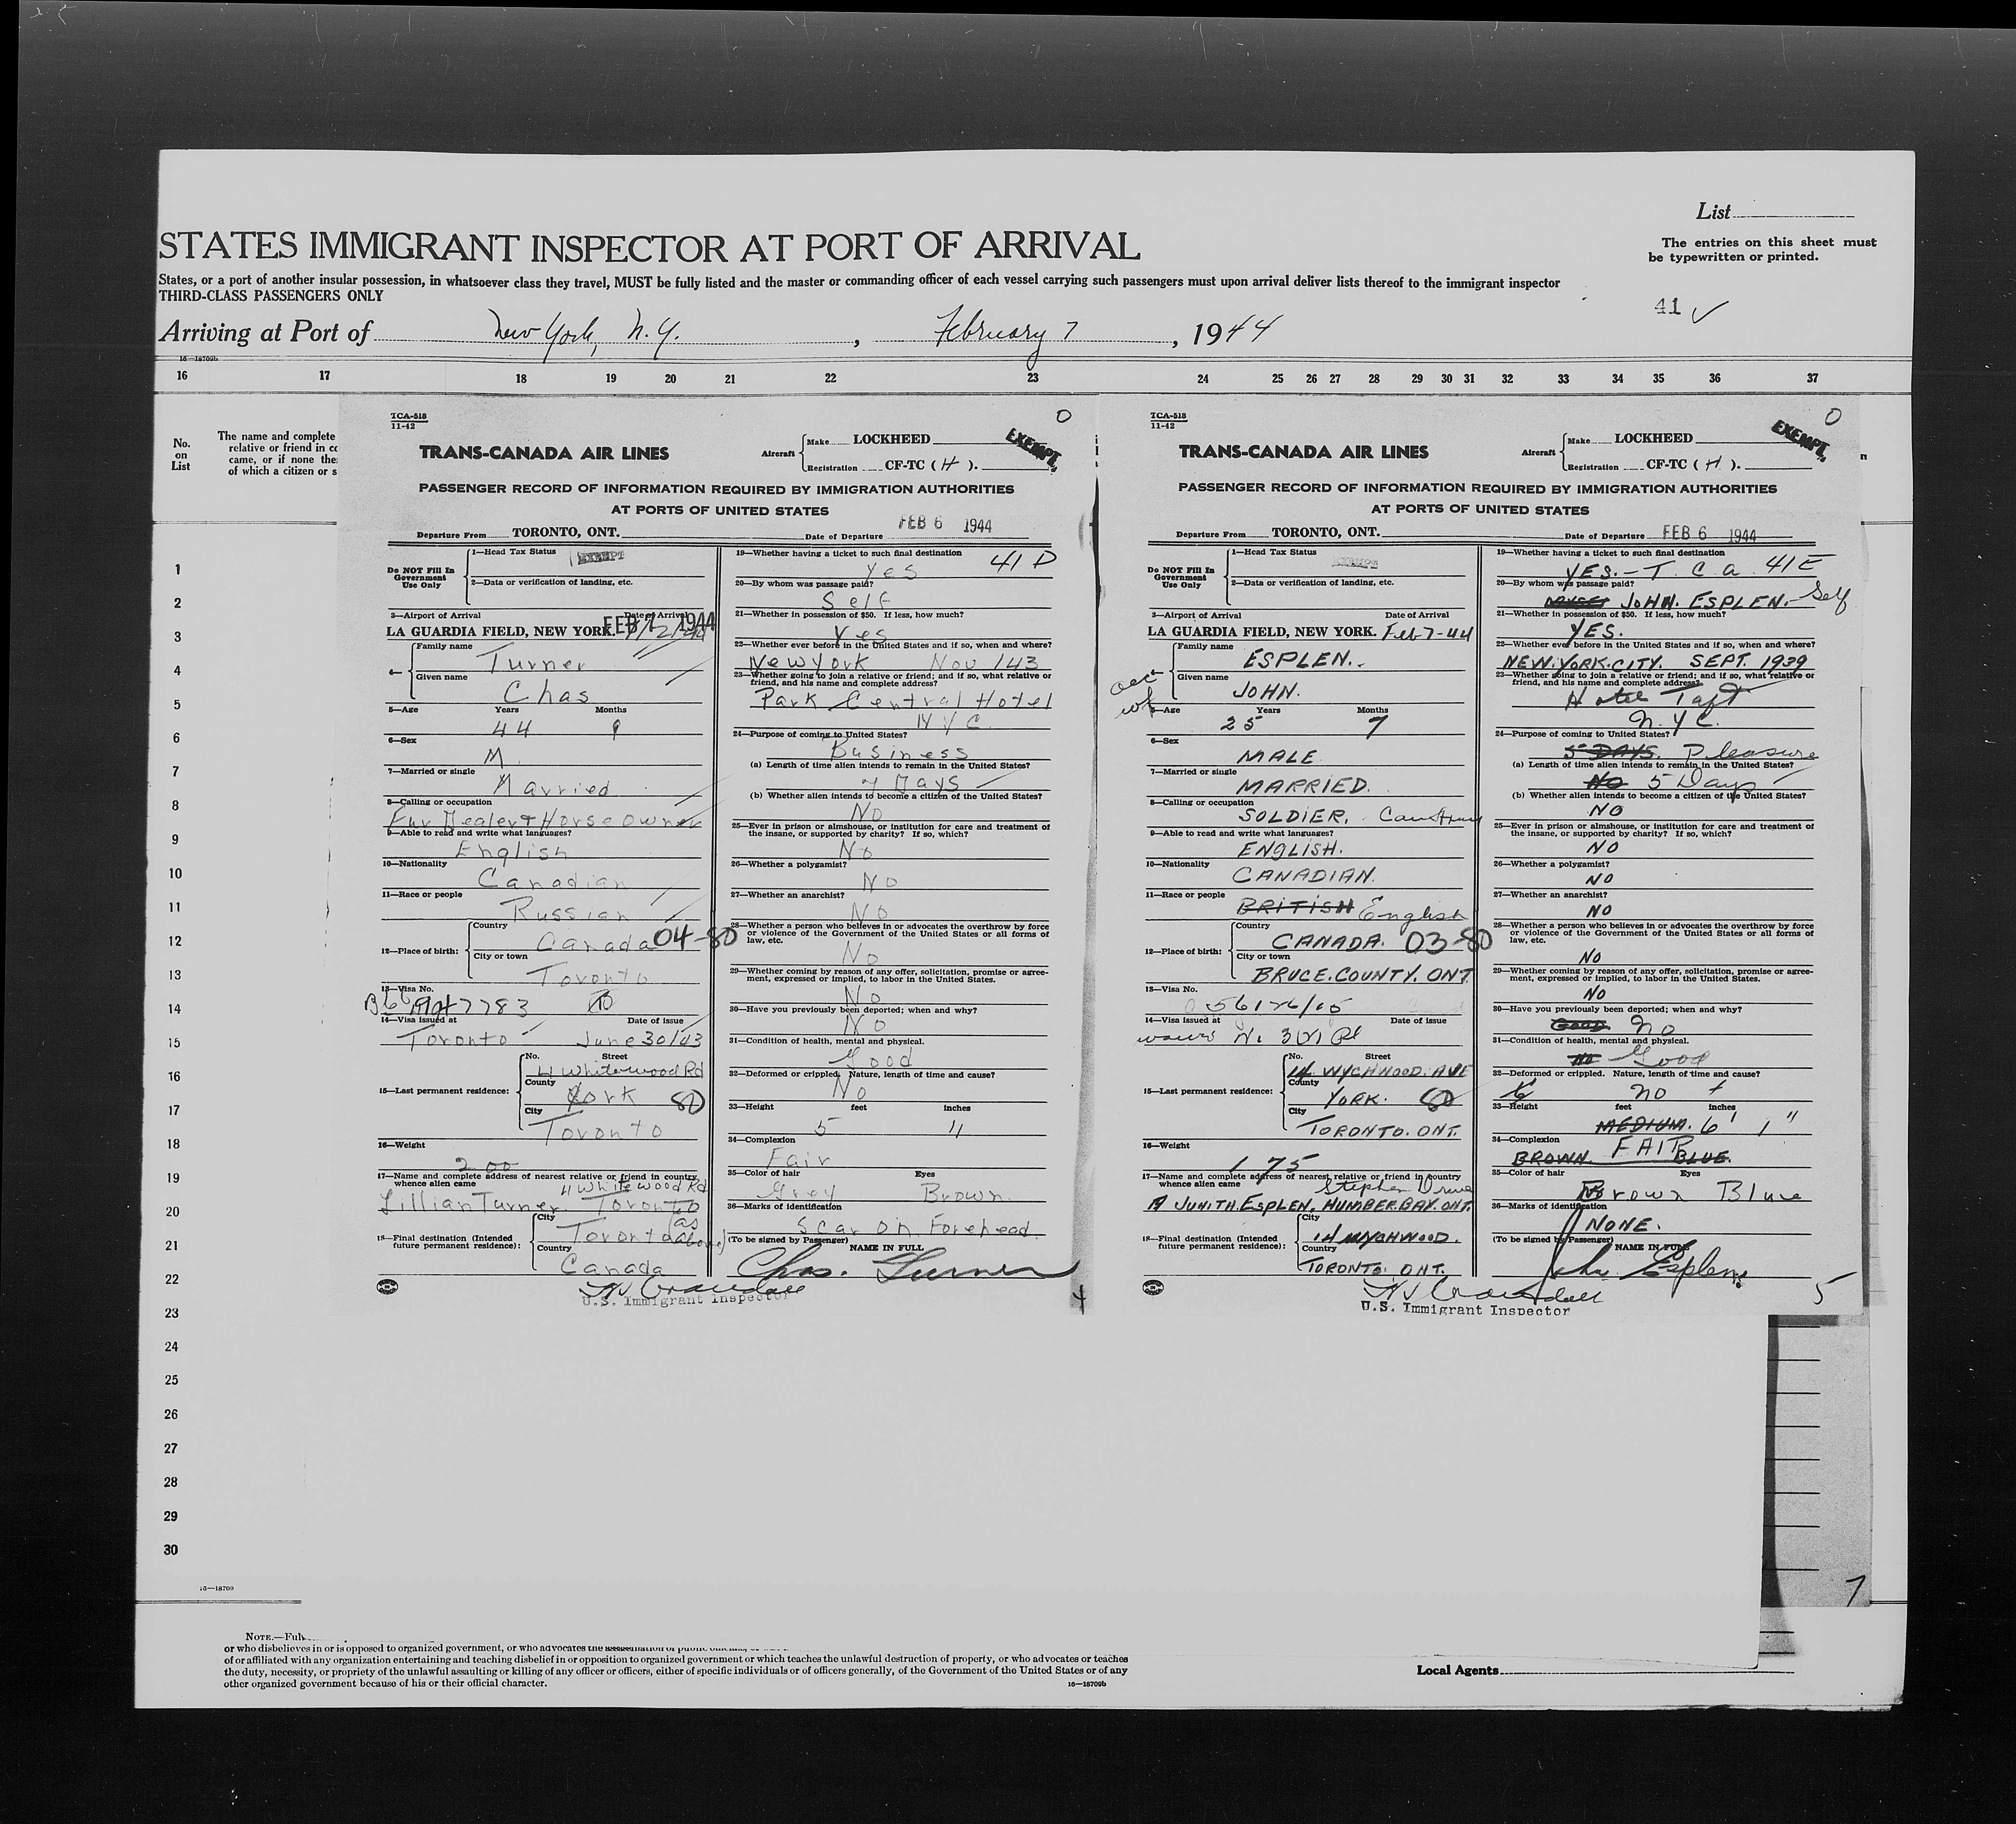 List
STATES IMMIGRANT INSPECTOR AT PORT OF ARRIVAL
The entries on this sheet must
be typewritten or printed.
States, or a port of another insular possession, in whatsoever class they travel, MUST be fully listed and the master or commanding officer of each vessel carrying such passengers must upon arrival deliver lists thereof to the immigrant inspector
THIRD-CLASS PASSENGERS ONLY
41 ✓
Arriving at Port of New York, N.Y., February 7, 1944
16—18709b
16 17 18 19 20 21 22 23 24 25 26 27 28 29 30 31 32 33 34 35 36 37
No.
on
List
The name and complete
relative or friend in co
came, or if none the
of which a citizen or s
1
2
3
4
5
6
7
8
9
10
11
12
13
14
15
16
17
18
19
20
21
22
23
24
25
26
27
28
29
30
TCA-518
11-42
0
TRANS-CANADA AIR LINES
Aircraft
Make LOCKHEED
Registration CF-TC ( H ).
EXEMPT.
PASSENGER RECORD OF INFORMATION REQUIRED BY IMMIGRATION AUTHORITIES
AT PORTS OF UNITED STATES
Departure From TORONTO, ONT. Date of Departure FEB 6 1944
Do NOT Fill In
Government
Use Only
1—Head Tax Status EXEMPT
2—Data or verification of landing, etc.
3—Airport of Arrival Date of Arrival
LA GUARDIA FIELD, NEW YORK. FEB 7 1944
4— Family name
Turner
Given name
Chas
5—Age Years Months
44 9
6—Sex
M
7—Married or single
Married
8—Calling or occupation
Fur Dealer & Horse Owner
9—Able to read and write what languages?
English
10—Nationality
Canadian
11—Race or people
Russian
12—Place of birth:
Country
Canada 04-80
City or town
Toronto
13—Visa No.
7783
14—Visa issued at Date of issue
Toronto June 30/43
15—Last permanent residence:
No. Street
4 Whitewood Rd
County
York 80
City
Toronto
16—Weight
200
17—Name and complete address of nearest relative or friend in country
whence alien came
4 Whitewood Rd
Lillian Turner Toronto
18—Final destination (Intended
future permanent residence):
City
Toronto (as above)
Country
Canada
U.S. Immigrant Inspector
19—Whether having a ticket to such final destination
Yes 41 D
20—By whom was passage paid?
Self
21—Whether in possession of $50. If less, how much?
Yes
22—Whether ever before in the United States and if so, when and where?
New York Nov /43
23—Whether going to join a relative or friend; and if so, what relative or
friend, and his name and complete address?
Park Central Hotel
NYC
24—Purpose of coming to United States?
Business
(a) Length of time alien intends to remain in the United States?
Days
(b) Whether alien intends to become a citizen of the United States?
No
25—Ever in prison or almshouse, or institution for care and treatment of
the insane, or supported by charity? If so, which?
No
26—Whether a polygamist?
No
27—Whether an anarchist?
No
28—Whether a person who believes in or advocates the overthrow by force
or violence of the Government of the United States or all forms of
law, etc.
No
29—Whether coming by reason of any offer, solicitation, promise or agree-
ment, expressed or implied, to labor in the United States.
No
30—Have you previously been deported; when and why?
No
31—Condition of health, mental and physical.
Good
32—Deformed or crippled. Nature, length of time and cause?
No
33—Height feet inches
5 11
34—Complexion
Fair
35—Color of hair Eyes
Grey Brown
36—Marks of identification
Scar on Forehead
(To be signed by Passenger) NAME IN FULL
Chas. Turner
4
TCA-518
11-42
0
TRANS-CANADA AIR LINES
Aircraft
Make LOCKHEED
Registration CF-TC ( H ).
EXEMPT.
PASSENGER RECORD OF INFORMATION REQUIRED BY IMMIGRATION AUTHORITIES
AT PORTS OF UNITED STATES
Departure From TORONTO, ONT. Date of Departure FEB 6 1944
Do NOT Fill In
Government
Use Only
1—Head Tax Status EXEMPT
2—Data or verification of landing, etc.
3—Airport of Arrival Date of Arrival
LA GUARDIA FIELD, NEW YORK. Feb-7-44
Family name
ESPLEN.
Given name
JOHN.
5—Age Years Months
25 7
6—Sex
MALE
7—Married or single
MARRIED.
8—Calling or occupation
SOLDIER.
9—Able to read and write what languages?
ENGLISH.
10—Nationality
CANADIAN.
11—Race or people
BRITISH English
12—Place of birth:
Country
CANADA. 03-80
City or town
BRUCE. COUNTY. ONT.
13—Visa No.
14—Visa issued at Date of issue
15—Last permanent residence:
No. Street
14 WYCHWOOD. AVE
County
YORK. 80
City
TORONTO. ONT.
16—Weight
175
17—Name and complete address of nearest relative or friend in country
whence alien came
Stephen Drive
JUNITH. ESPLEN. HUMBER. BAY. ONT.
18—Final destination (Intended
future permanent residence):
City
14 WYCHWOOD.
Country
TORONTO. ONT.
U.S. Immigrant Inspector
19—Whether having a ticket to such final destination
YES. - T. C. A. 41 E
20—By whom was passage paid?
JOHN. ESPLEN. - Self
21—Whether in possession of $50. If less, how much?
YES.
22—Whether ever before in the United States and if so, when and where?
NEW. YORK. CITY. SEPT. 1939
23—Whether going to join a relative or friend; and if so, what relative or
friend, and his name and complete address?
Hotel Taft
N.Y.C.
24—Purpose of coming to United States?
5 DAYS. Pleasure
(a) Length of time alien intends to remain in the United States?
NO 5 Days
(b) Whether alien intends to become a citizen of the United States?
NO
25—Ever in prison or almshouse, or institution for care and treatment of
the insane, or supported by charity? If so, which?
NO
26—Whether a polygamist?
NO
27—Whether an anarchist?
NO
28—Whether a person who believes in or advocates the overthrow by force
or violence of the Government of the United States or all forms of
law, etc.
NO
29—Whether coming by reason of any offer, solicitation, promise or agree-
ment, expressed or implied, to labor in the United States.
NO
30—Have you previously been deported; when and why?
GOOD No
31—Condition of health, mental and physical.
NO Good
32—Deformed or crippled. Nature, length of time and cause?
no
33—Height feet inches
MEDIUM. 6' 1"
34—Complexion
BROWN. FAIR BLUE.
35—Color of hair Eyes
Brown Blue
36—Marks of identification
NONE.
(To be signed by Passenger) NAME IN FULL
John Esplen
5
7
16—18709
NOTE.—Full
or who disbelieves in or is opposed to organized government, or who advocates the assassination of public officials,
of or affiliated with any organization entertaining and teaching disbelief in or opposition to organized government or which teaches the unlawful destruction of property, or who advocates or teaches
the duty, necessity, or propriety of the unlawful assaulting or killing of any officer or officers, either of specific individuals or of officers generally, of the Government of the United States or of any
other organized government because of his or their official character.
16—18709b
Local Agents